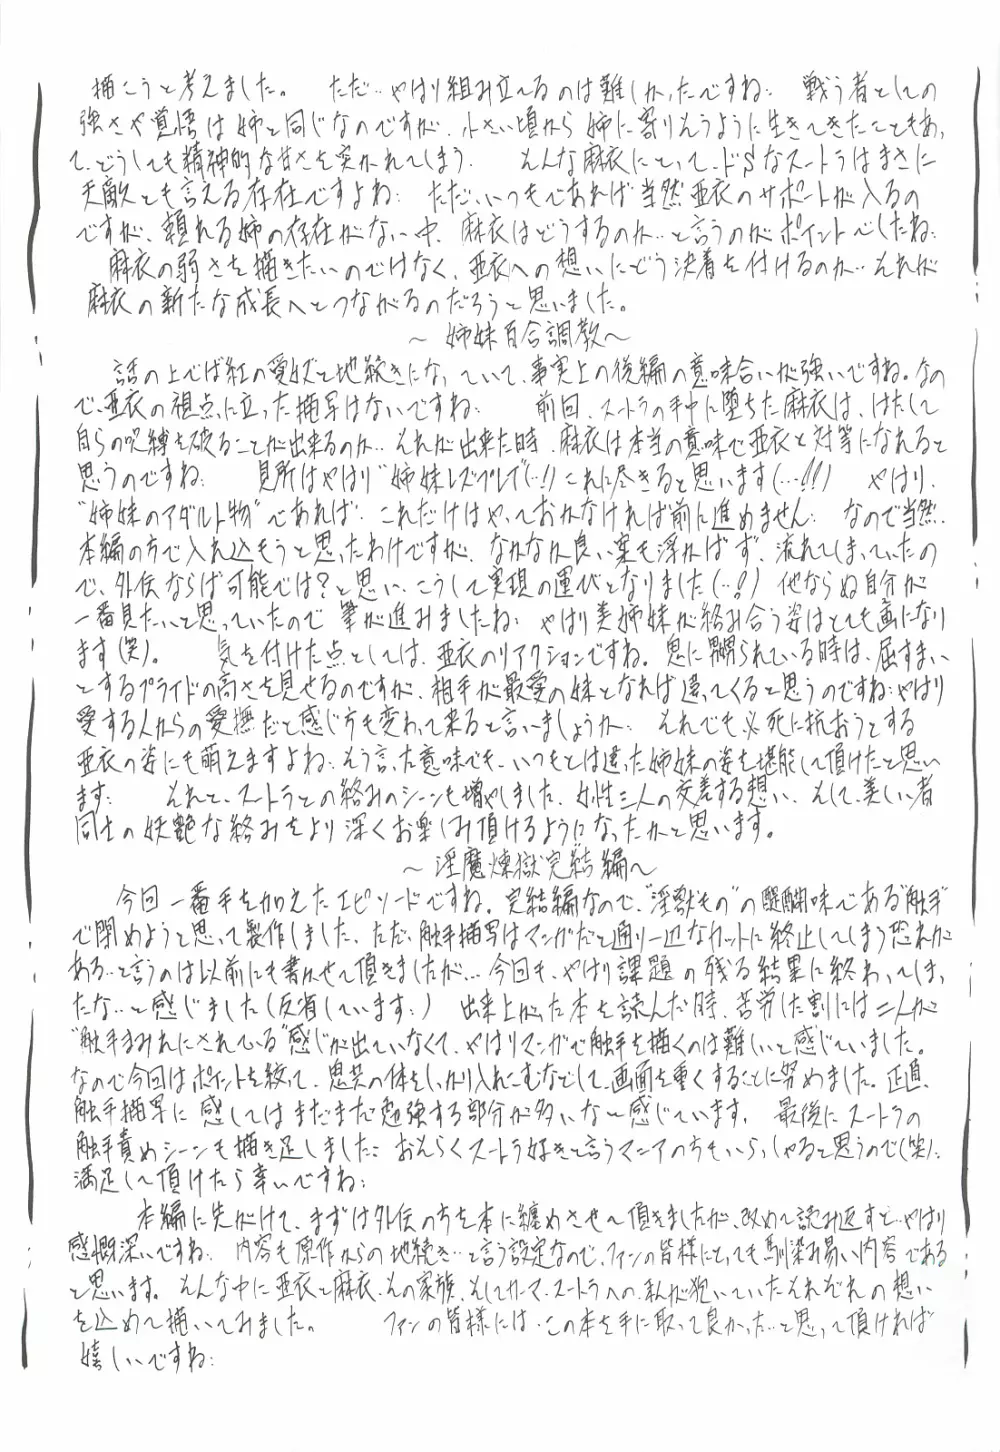 描こうと考えました。 ただ…やはり組み立てるのは難しかったですね… 戦う者としての
強さや覚悟は姉と同じなのですが、小さい頃から姉に寄りそうように生きてきたこともあっ
て、どうしても精神的な甘さを突かれてしまう… そんな麻衣にとって、ドSなスートラはまさに
天敵とも言える存在ですよね… ただ、いつもであれば当然亜衣のサポートが入るの
ですが、頼れる姉の存在がない中、麻衣はどうするのか…と言うのがポイントでしたね…
麻衣の弱さを描きたいのではなく、亜衣への想いにどう決着を付けるのか…それが
麻衣の新たな成長へとつながるのだろうと思いました。
～姉妹百合調教～
話の上では紅の愛奴と地続きになっていて、事実上の後編の意味合いが強いですね。なの
で、亜衣の視点に立った描写はないですね… 前回、スートラの手中に堕ちた麻衣は、はたして
自らの呪縛を破ることが出来るのか…それが出来た時、麻衣は本当の意味で亜衣と対等になれると
思うのですね… 見所はやはり“姉妹レズプレイ”(…!)これに尽きると思います(…!!) やはり、
“姉妹のアダルト物”であれば、これだけはやっておかなければ前に進めません… なので当然、
本編の方で入れ込もうと思ったわけですが、なかなか良い案も浮かばず、流れてしまっていたの
で、外伝ならば可能では?と思い、こうして実現の運びとなりました(…!) 他ならぬ自分が
一番見たいと思っていたので筆が進みましたね… やはり美姉妹が絡み合う姿はとても画になり
ます(笑)。 気を付けた点としては、亜衣のリアクションですね。鬼に嬲られている時は、屈すまい
とするプライドの高さを見せるのですが、相手が最愛の妹となれば違ってくると思うのですね…やはり
愛する人からの愛撫だと感じ方も変わって来ると言いましょうか… それでも必死に抗おうとする
亜衣の姿にも萌えますよね…そう言った意味でも、いつもとは違った姉妹の姿を堪能して頂けたと思い
ます… それと、スートラとの絡みのシーンも増やしました、女性三人の交差する想い、そして、美しい者
同士の妖艶な絡みをより深くお楽しみ頂けるようになったかと思います。
～淫魔煉獄完結編～
今回一番手を加えたエピソードですね。完結編なので、“淫獣もの”の醍醐味である“触手”
で閉めようと思って製作しました、ただ、触手描写はマンガだと通り一辺なカットに終止してしまう恐れが
ある…と言うのは以前にも書かせて頂きましたが…今回も、やはり課題の残る結果に終わってしまっ
たな…と感じました(反省しています…) 出来上がった本を読んだ時、苦労した割には二人が
“触手まみれにされている”感じが出ていなくて、やはりマンガで触手を描くのは難しいと感じていました。
なので今回はポイントを絞って、鬼共の体をしっかり入れこむなどして、画面を重くすることに努めました。正直、
触手描写に感してはまだまだ勉強する部分が多いな～感じています、 最後にスートラの
触手責めシーンも描き足しました… おそらくスートラ好きと言うマニアの方もいらっしゃると思うので(笑)…
満足して頂けたら幸いですね…
本編に先がけて、まずは外伝の方を本に纏めさせて頂きましたが、改めて読み返すと…やはり
感慨深いですね… 内容も原作からの地続き…と言う設定なので、ファンの皆様にとっても馴染み易い内容である
と思います。 そんな中に亜衣と麻衣、その家族、そしてカーマ、スートラへの、私が抱いていたそれぞれの想い
を込めて描いてみました。 ファンの皆様には、この本を手に取って良かった…と思って頂ければ
嬉しいですね…